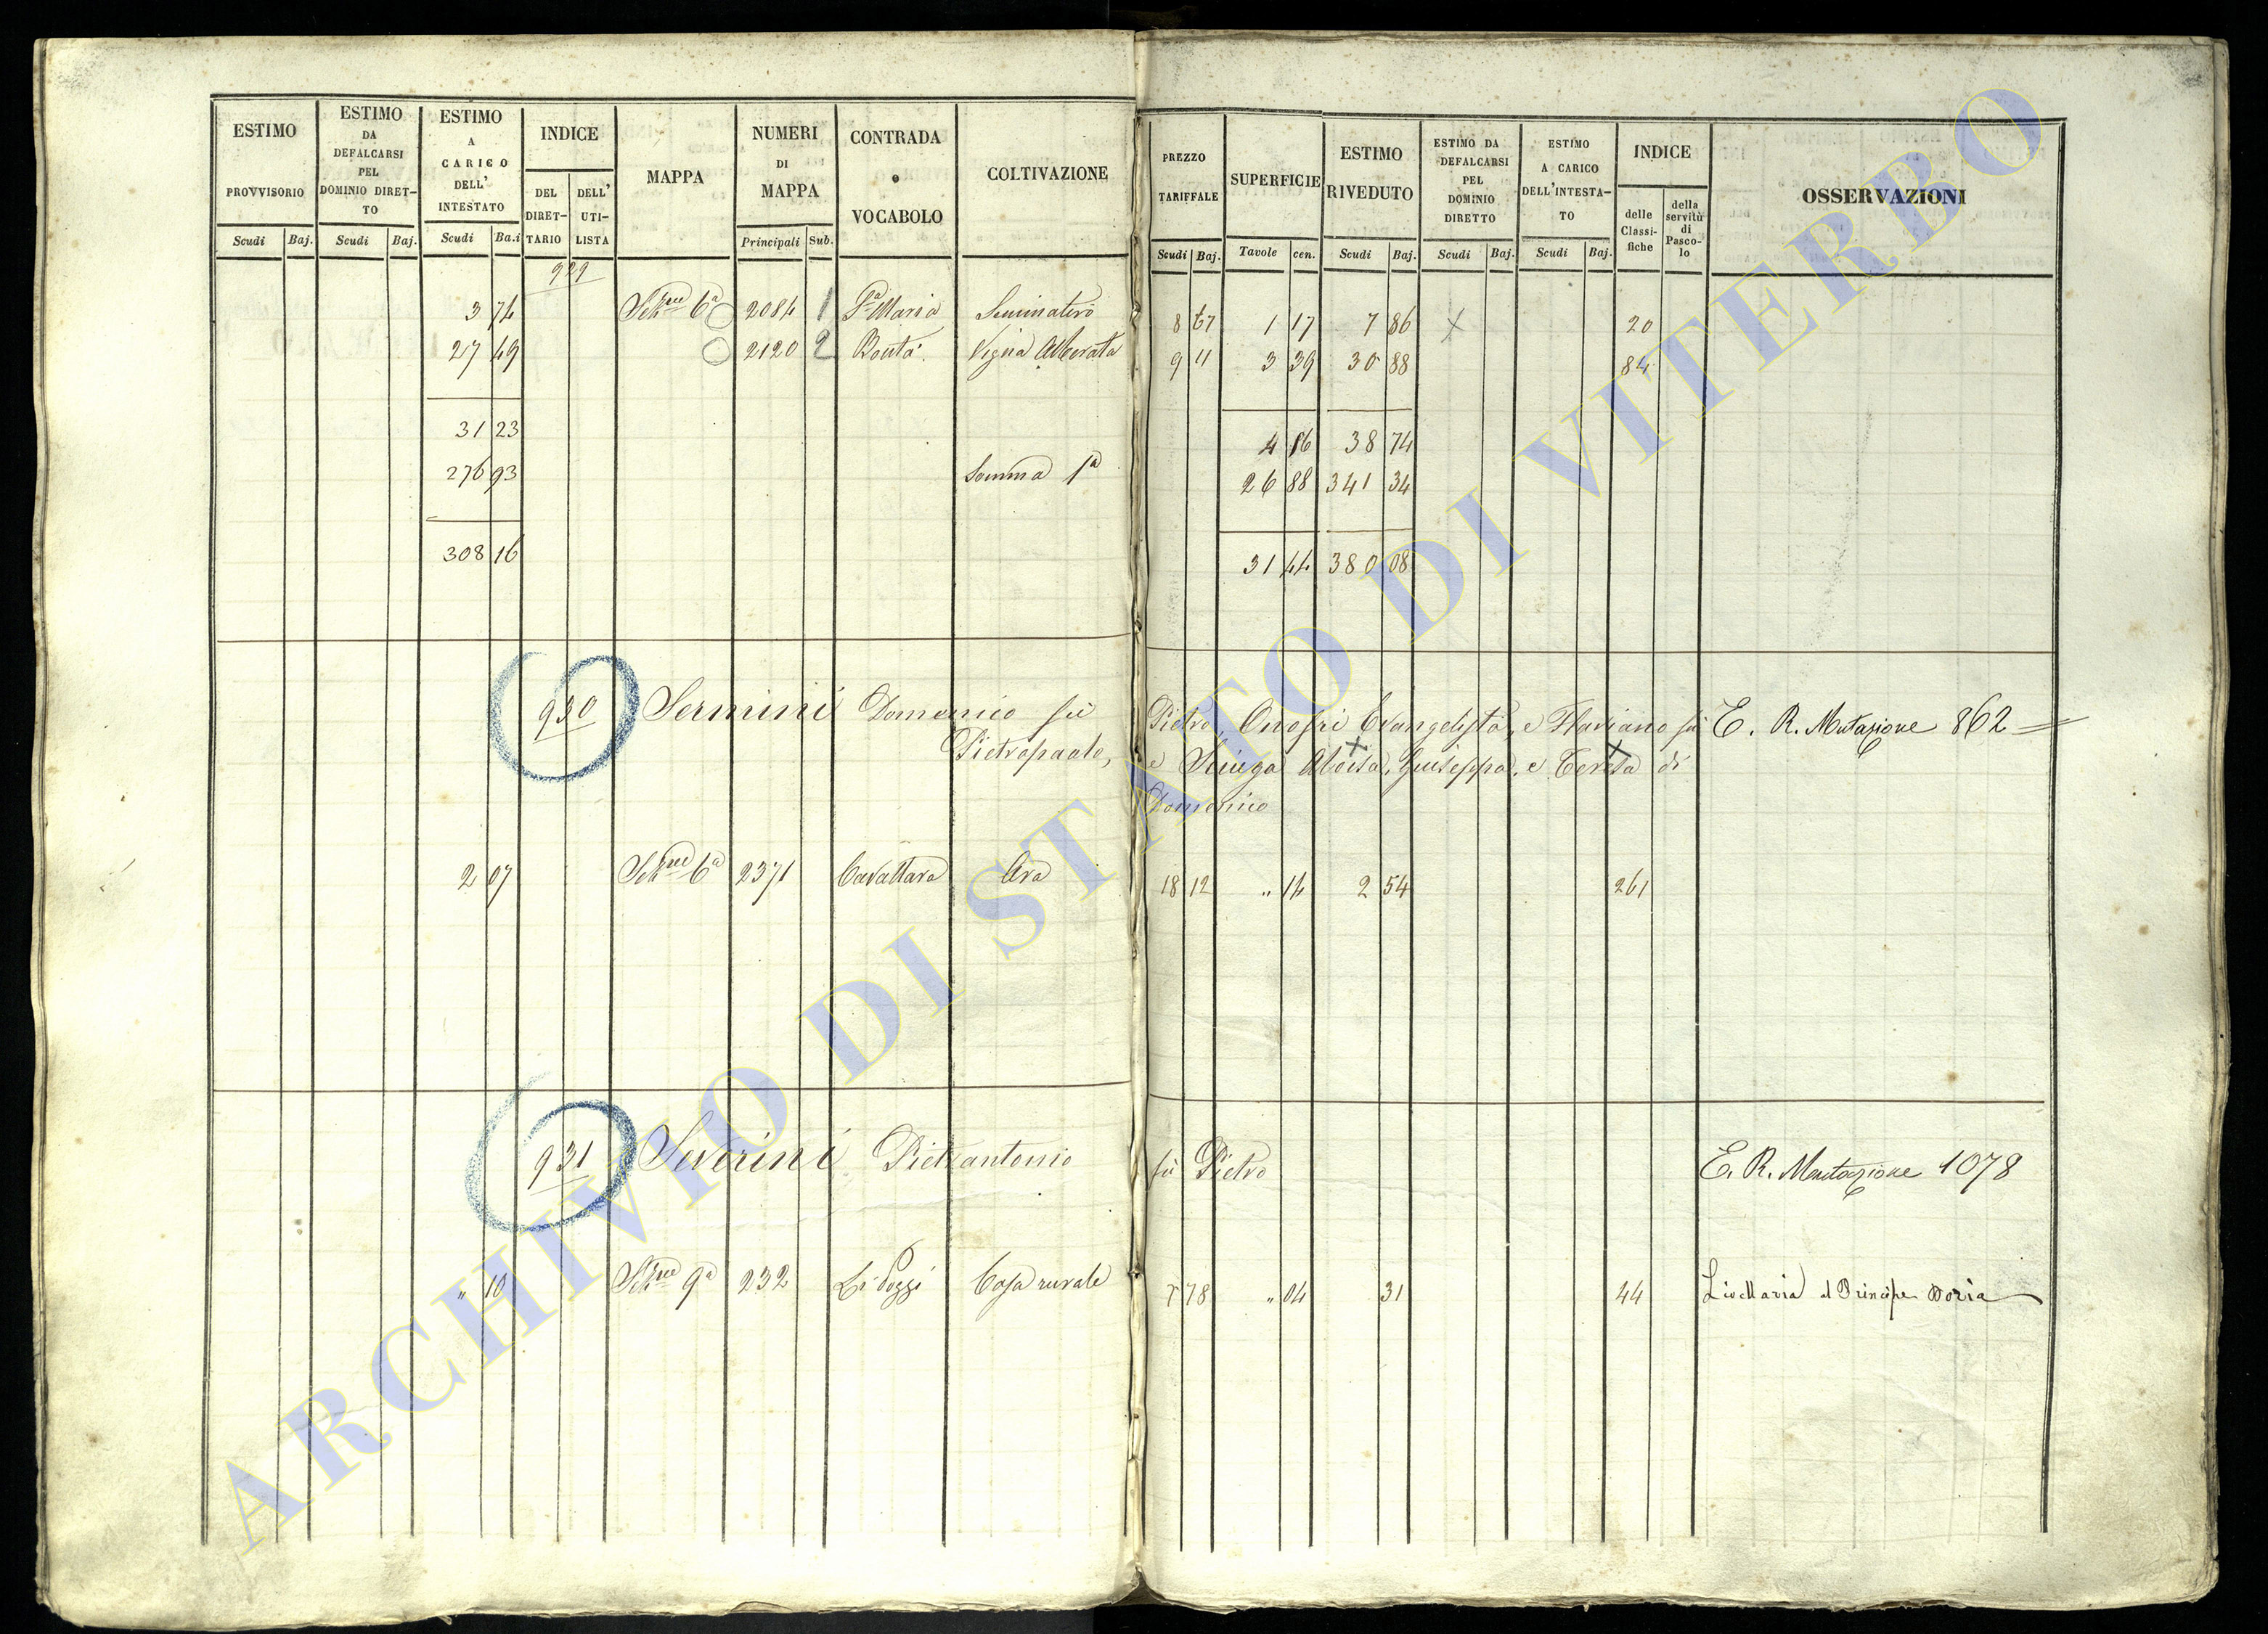 ESTIMO PROVVISORIO
Scudi Baj.
ESTIMO DA DEFALCARSI PEL DOMINIO DIRETTO
Scudi Baj.
ESTIMO A CARICO DELL' INTESTATO
Scudi Ba.i
INDICE
DEL DIRETTARIO
DELL' UTILISTA
MAPPA
NUMERI DI MAPPA
Principali Sub.
CONTRADA o VOCABOLO
COLTIVAZIONE
PREZZO TARIFFALE
Scudi Baj.
SUPERFICIE
Tavole cen.
ESTIMO RIVEDUTO
Scudi Baj.
ESTIMO DA DEFALCARSI PEL DOMINIO DIRETTO
Scudi Baj.
ESTIMO A CARICO DELL'INTESTATO
Scudi Baj.
INDICE
delle Classifiche
della servitù di Pascolo
OSSERVAZIONI
929
3 74 6ª 2084 1 Sª Maria Seminativo 8 67 1 17 7 86 X 20
27 49 2120 2 Vigna Alberata 9 11 3 39 30 88 84
31 23 38 74
276 93 Somma 1ª 26 88 341 34
308 16 31 44 380 08
930 Sermini Domenico fù Pietro, Onofri Evangelista, e Flaviano fù E. R. Mutazione 862
Pietropaolo, e Aloisa, Giuseppa, e Teresa di
Domenico
2 07 6ª 2371 Cavattara Ara 18 12 " 14 2 54 261
931 Severini Pietrantonio fù Pietro E. R. Mutazione 1078
" 10 9ª 232 Li Poggi Casa rurale 7 78 " 04 31 44 al Principe Doria
ARCHIVIO DI STATO DI VITERBO